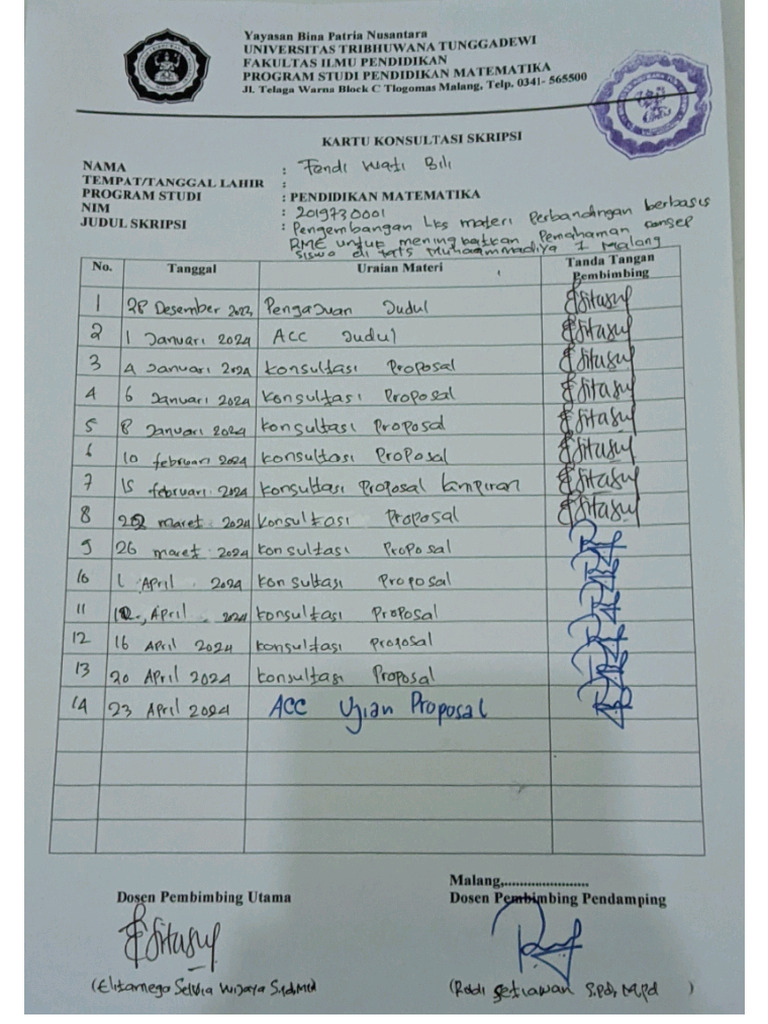 Yayasan Bina Patria Nusantara
UNIVERSITAS TRIBHUWANA TUNGGADEWI
FAKULTAS ILMU PENDIDIKAN
PROGRAM STUDI PENDIDIKAN MATEMATIKA
Jl. Telaga Warna Block C Tlogomas Malang, Telp. 0341- 565500
KARTU KONSULTASI SKRIPSI
NAMA : Fendi Wati Bili
TEMPAT/TANGGAL LAHIR :
PROGRAM STUDI : PENDIDIKAN MATEMATIKA
NIM : 2019730001
JUDUL SKRIPSI : Pengembangan Lks materi Perbandingan berbasis
RME untuk meningkatkan Pemahaman konsep
siswa di MTS Muhammadiya 1 Malang
No. Tanggal Uraian Materi Tanda Tangan Pembimbing
1 28 Desember 2023 Pengajuan Judul
2 1 Januari 2024 ACC Judul
3 4 Januari 2024 konsultasi Proposal
4 6 Januari 2024 konsultasi Proposal
5 8 Januari 2024 konsultasi Proposal
6 10 februari 2024 konsultasi Proposal
7 15 februari 2024 konsultasi Proposal Lampiran
8 22 maret 2024 konsultasi Proposal
9 26 maret 2024 konsultasi Proposal
10 1 April 2024 konsultasi Proposal
11 12, April 2024 konsultasi Proposal
12 16 April 2024 konsultasi Proposal
13 20 April 2024 konsultasi Proposal
14 23 April 2024 ACC Ujian Proposal
Malang,.......................
Dosen Pembimbing Utama Dosen Pembimbing Pendamping
(Elitarnego Selvia Wijaya S.Pd, M.Pd (Roddi Setiawan S.Pd, M.Pd )